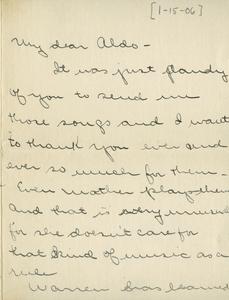 [1-15-06]
My dear Aldo-
It was just dandy
of you to send me
those songs and I want
to thank you ever and
ever so much for them-
Even mother plays them
and that is very unusual
for she doesn't care for
that kind of music as a
rule
Warren has learned